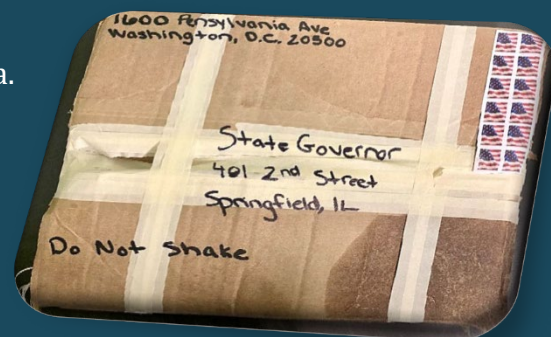 a.
1600 Pensylvania Ave
Washington, D.C. 20500
State Governor
401 2nd Street
Springfield, IL
Do Not Shake